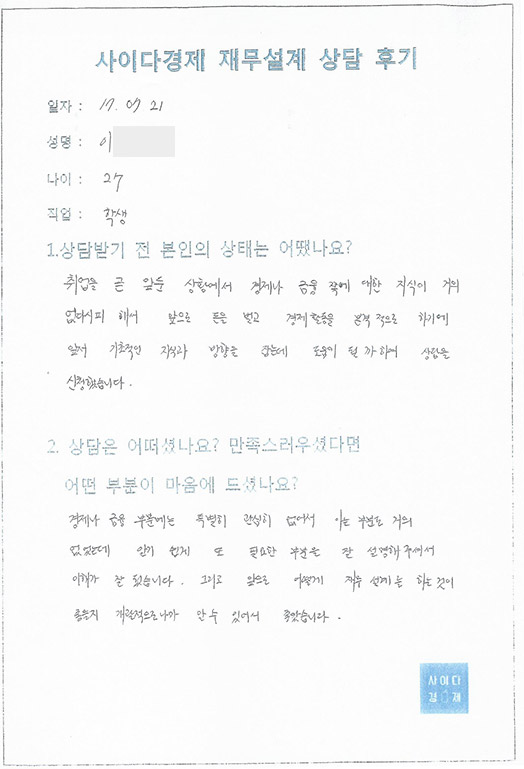 사이다경제 재무설계 상담 후기
일자 : 17. 07 21
성명 : 이
나이 : 27
직업 : 학생
1.상담받기 전 본인의 상태는 어땠나요?
취업을 곧 앞둔 상황에서 경제나 금융 쪽에 대한 지식이 거의
없다시피 해서 앞으로 돈을 벌고 경제활동을 본격적으로 하기에
앞서 기초적인 지식과 방향을 잡는데 도움이 될까하여 상담을
신청했습니다.
2. 상담은 어떠셨나요? 만족스러우셨다면
어떤 부분이 마음에 드셨나요?
경제나 금융 부분에는 특별히 관심히 없어서 아는 부분도 거의
없었는데 알기 쉽게 또 필요한 부분을 잘 설명해주셔서
이해가 잘 됐습니다. 그리고 앞으로 어떻게 재무 설계를 하는것이
옳을지 개괄적으로나마 알 수 있어서 좋았습니다.
사이다
경제